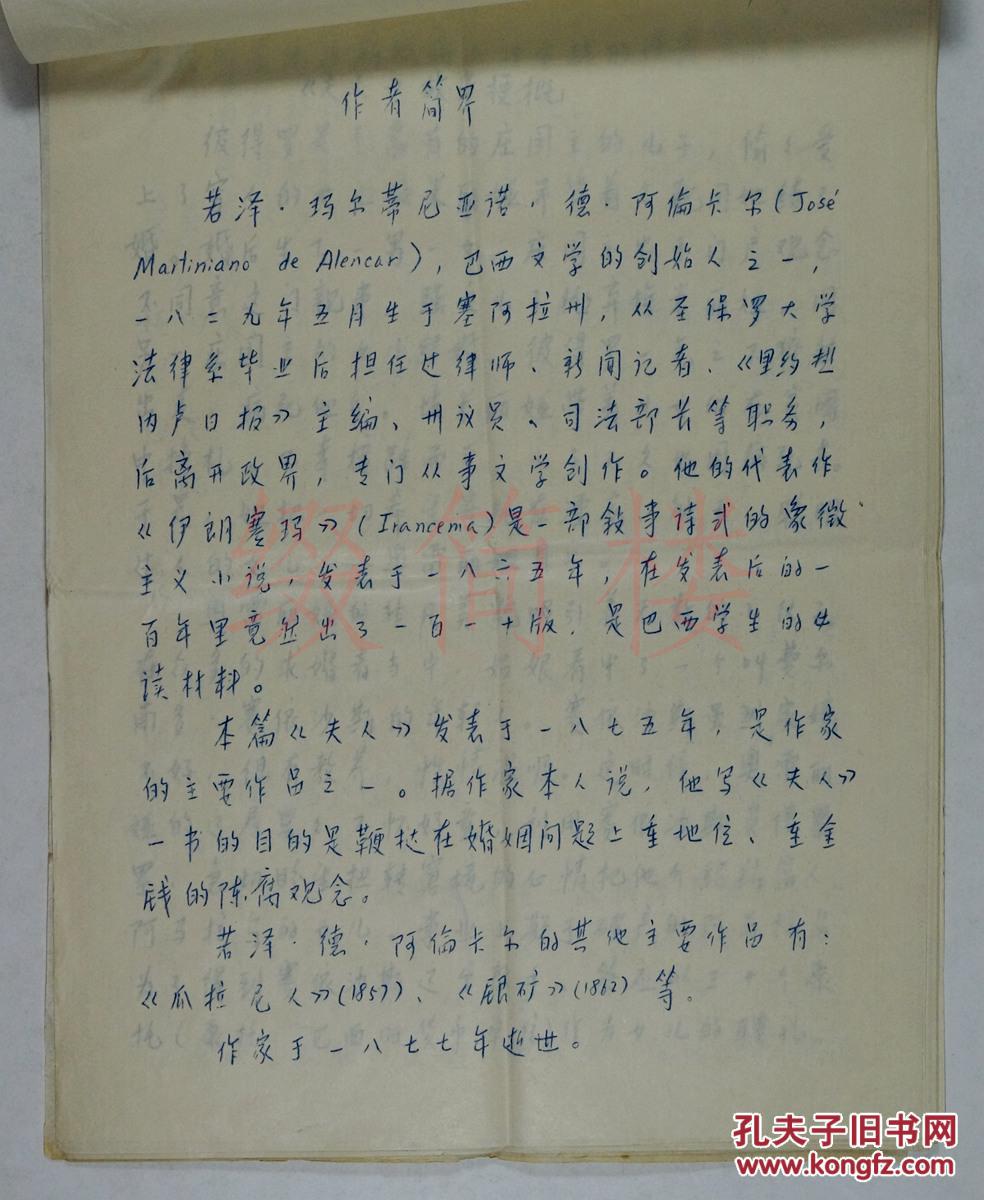 作者简界
若泽·玛尔蒂尼亚诺·德·阿倫卡尔(José
Martiniano de Alencar),巴西文学的创始人之一,
一八二九年五月生于塞阿拉州,从圣保罗大学
法律系毕业后担任过律师、新闻记者、《里约热
内卢日报》主编、州议员、司法部长等职务,
后离开政界,专门从事文学创作。他的代表作
《伊朗塞玛》(Irancema)是一部叙事诗式的象徵
主义小说,发表于一八六五年,在发表后的一
百年里竟然出了一百一十版,是巴西学生的必
读材料。
本篇《夫人》发表于一八七五年,是作家
的主要作品之一。据作家本人说,他写《夫人》
一书的目的是鞭挞在婚姻问题上重地位、重金
钱的陈腐观念。
若泽·德·阿倫卡尔的其他主要作品有:
《瓜拉尼人》(1857)、《银矿》(1862)等。
作家于一八七七年逝世。
缀简楼
孔夫子旧书网
www.kongfz.com